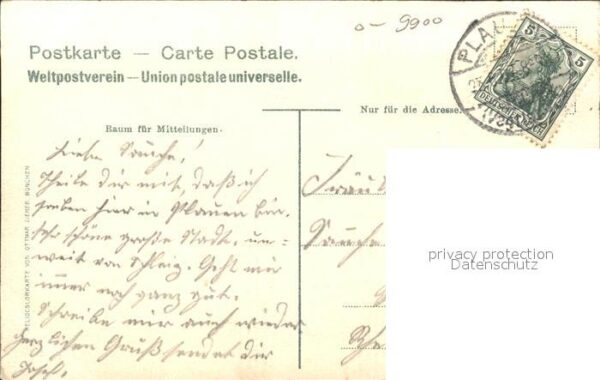 o- 9900
Postkarte — Carte Postale.
Weltpostverein — Union postale universelle.
PLAU
5 5
DEUTSCHES REICH
Nur für die Adresse.
Raum für Mitteilungen.
Liebe
Theile dir mit, daß ich
hier in Plauen bin.
Sehr schöne große Stadt, un=
weit von Schleiz. Geht mir
immer noch ganz gut.
Schreibe mir auch wieder
Herzlichen Gruß sendet dir
Josef.
Fräul
privacy protection
Datenschutz
VON OTTMAR ZIEHER, MÜNCHEN